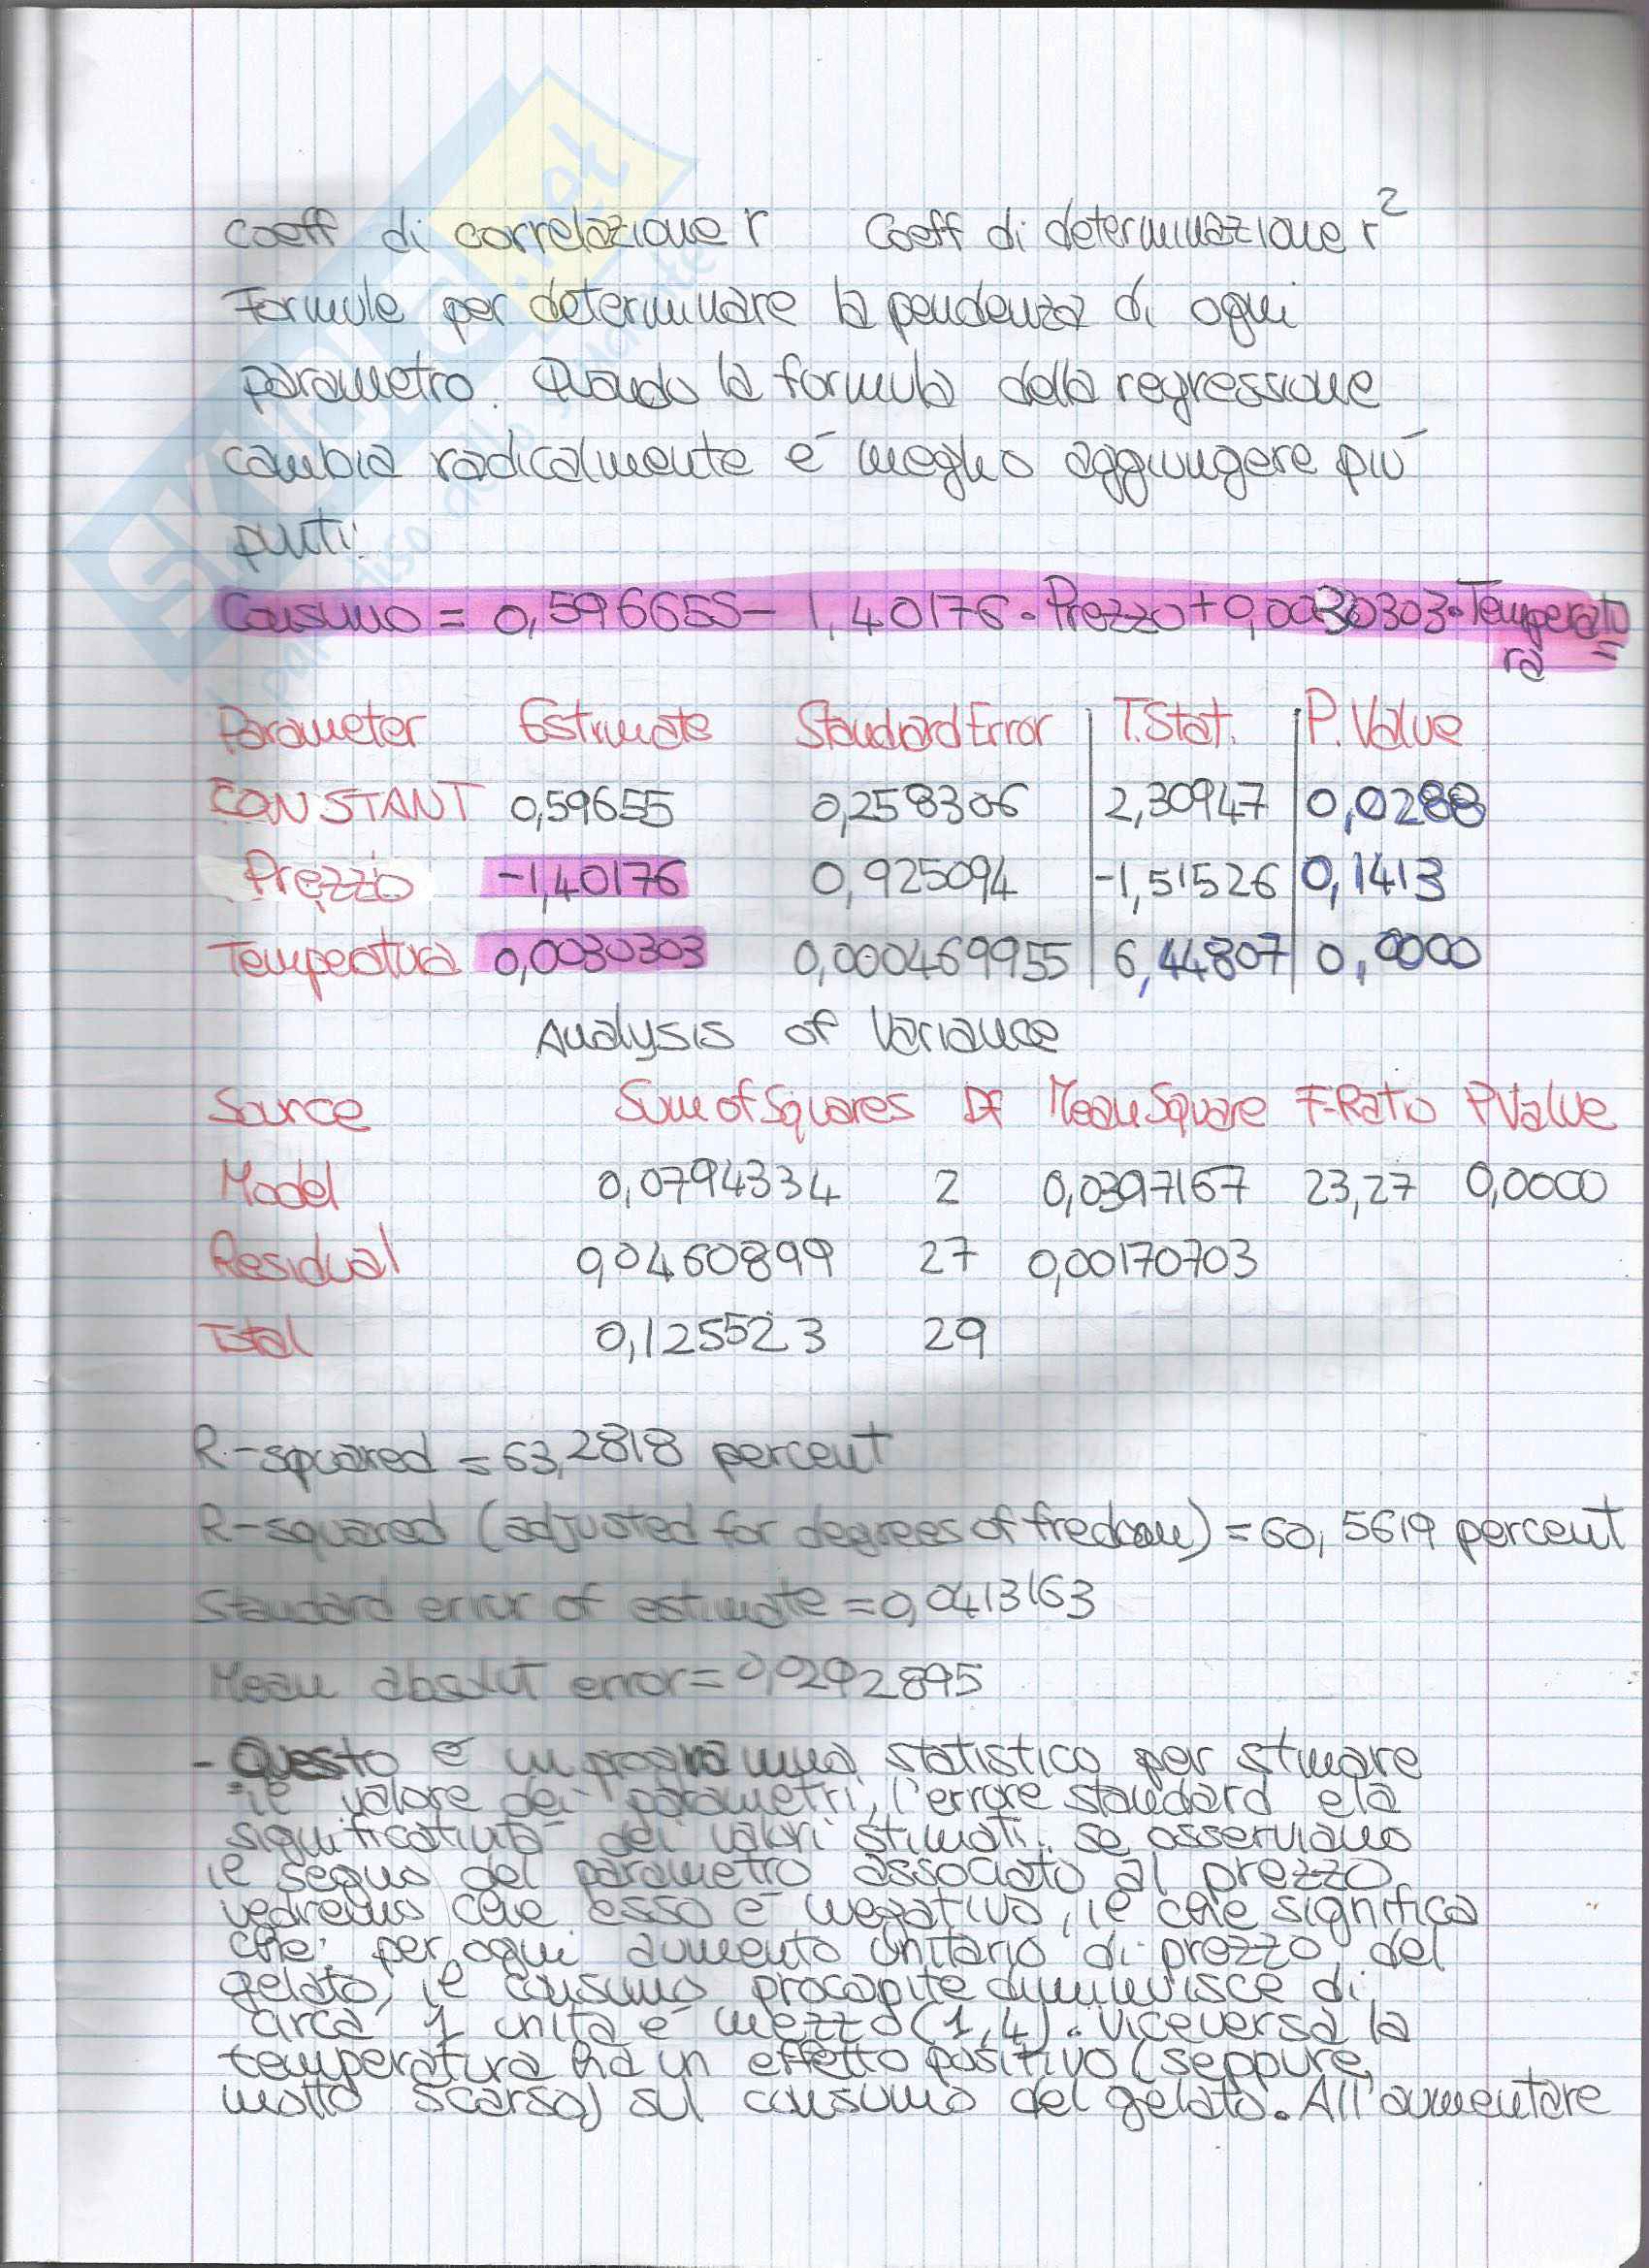 coeff di correlazione r Coeff di determinazione r²
Formule per determinare la pendenza di ogni
parametro. Quando la formula della regressione
cambia radicalmente é meglio aggiungere piú
punti!
Consumo = 0,596655 - 1,40176 · Prezzo + 0,0030303 · Temperato
ra
Parameter Estimate Standard Error T.Stat. P.Value
CONSTANT 0,59655 0,258306 2,30947 0,0288
Prezzo -1,40176 0,925094 -1,51526 0,1413
Temperatura 0,0030303 0,000469955 6,44807 0,0000
Analysis of Variance
Source Sum of Squares Df Mean Square F-Ratio P.Value
Model 0,0794334 2 0,0397167 23,27 0,0000
Residual 0,0460899 27 0,00170703
Total 0,125523 29
R-squared = 63,2818 percent
R-squared (adjusted for degrees of fredom) = 60,5619 percent
Standard error of estimate = 0,0413163
Mean absolut error = 0,0292895
- Questo é un programma statistico per stimare
il valore dei parametri, l'errore standard e la
significativitá dei valori stimati. Se osserviamo
il segno del parametro associato al prezzo
vedremo che esso é negativo, il che significa
che, per ogni aumento unitario di prezzo del
gelato, il consumo procapite diminuisce di
circa 1 unitá e mezzo (1,4). Viceversa la
temperatura ha un effetto positivo (seppure
molto scarso) sul consumo del gelato. All'aumentare